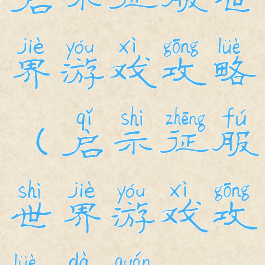 启示征服世
jiè yóu xì gōng lüè
界游戏攻略
qǐ shì zhēng fú
（启示征服
shì jiè yóu xì gōng
世界游戏攻
lüè dà quán